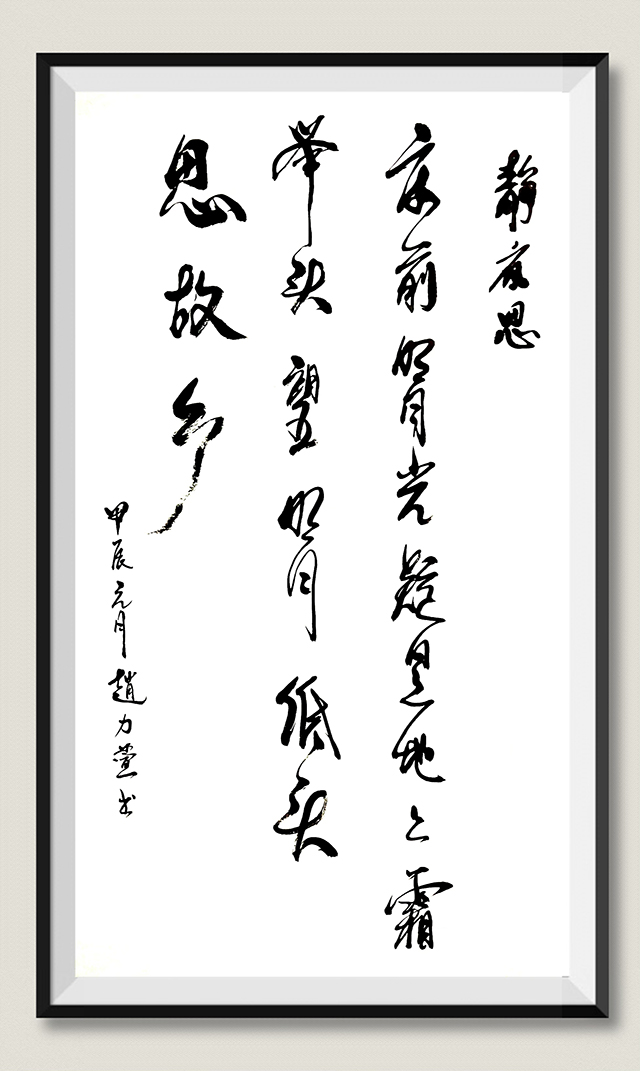 静夜思
床前明月光疑是地上霜
举头望明月低头
思故乡
甲辰元月赵力萱书